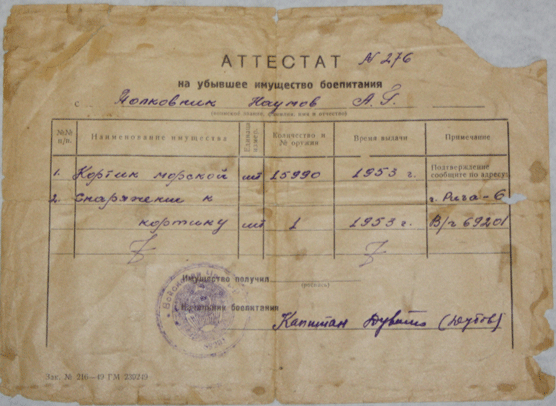 АТТЕСТАТ N 276
на убывшее имущество боепитания
с Полковник Наумов А. Г.
№№ п/п. Наименование имущества Единица измер. Количество и № оружия Время выдачи Примечание
1. Кортик морской шт 15990 1953 г. Подтверждение сообщите по адресу:
2. Снаряжении к г. Рига-6
кортику шт 1 1953 г. В/ч 69201
Имущество получил
(подпись)
Начальник боепитания
Капитан (Дутов)
Заг. № 216—49 ГМ 230249